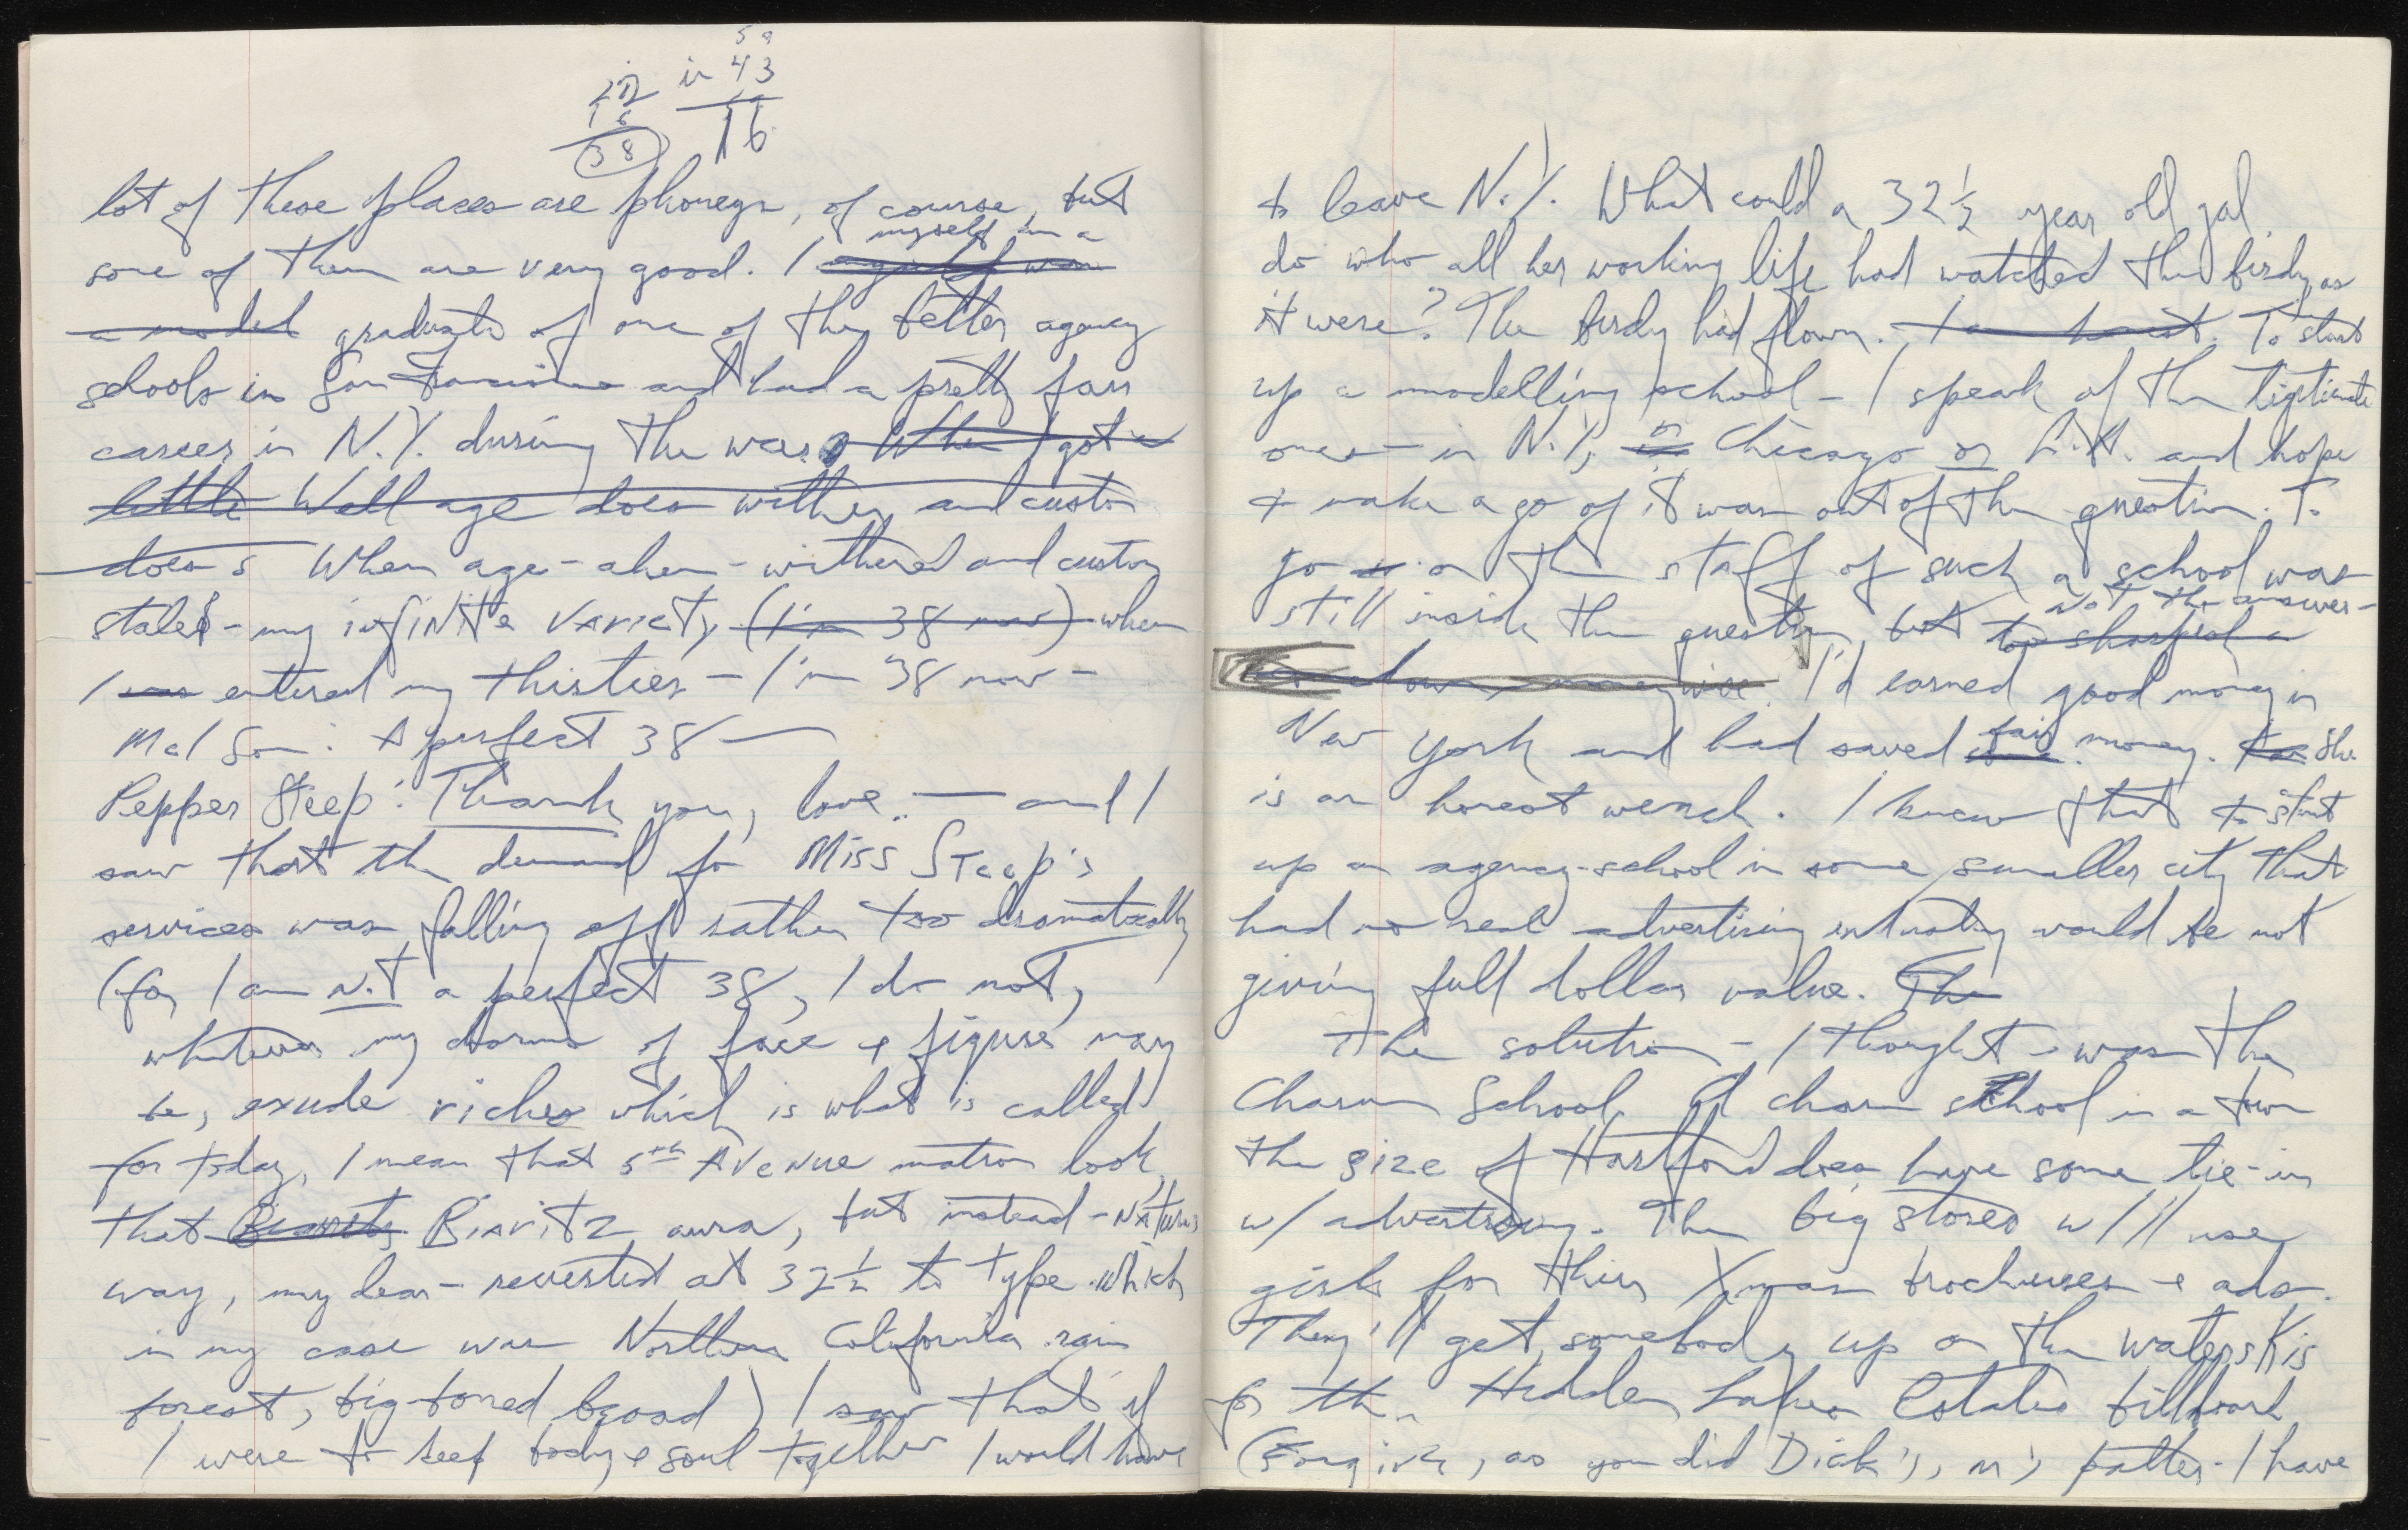 59
22 in 43
16 16
38
lot of these places are phoneys, of course, but
myself am a
some of them are very good. I
a model graduate of one of the better agency
schools in San Francisco and had a pretty fair
career in N.Y. during the war. When I got a
little Well age does wither and custom
does s When age - ahem - withered and custom
staled - my infinite variety (I'm 38 now) when
I was entered my thirties - I'm 38 now -
Mel Son: A perfect 38 —
Pepper Steep: Thank you, love. — and I
saw that the demand for Miss Steep's
services was falling off rather too dramatically
(for I am not a perfect 38, I do not,
whatever my charms of face & figure may
be, exude riches which is what is called
for today, I mean that 5th Avenue matron look,
that Biarritz Biaritz aura, but instead - Nature's
way, my dear - reverted at 32½ to type which
in my case was Northern California rain
forest, big-boned broad) I saw that if
I were to keep body & soul together I would have
to leave N.Y. What could a 32½ year old gal
do who all her working life had watched the birdy, as
it were? The birdy had flown. To start
up a modelling school - I speak of the legitimate
ones - in N.Y., in or Chicago or L.A. and hope
to make a go of it was out of the question. To
go on the staff of such a school was
not the answer -
still inside the question, but too sharped a
down, moneywise. I'd earned good money in
fair
New York and had saved some money. She
is an honest wench. I knew that to start
up an agency-school in some smaller city that
had no real advertising industry would be not
giving full dollar value. The
The solution - I thought - was the
Charm School. A charm school in a town
the size of Hartford does have some tie-in
w/ advertising. The big stores w/ll use
girls for their Xmas brochures & ads.
They'll get somebody up on the waterskis
for the Hidden Lakes Estates billboard
(Forgive, as you did Dick's, my patter - I have